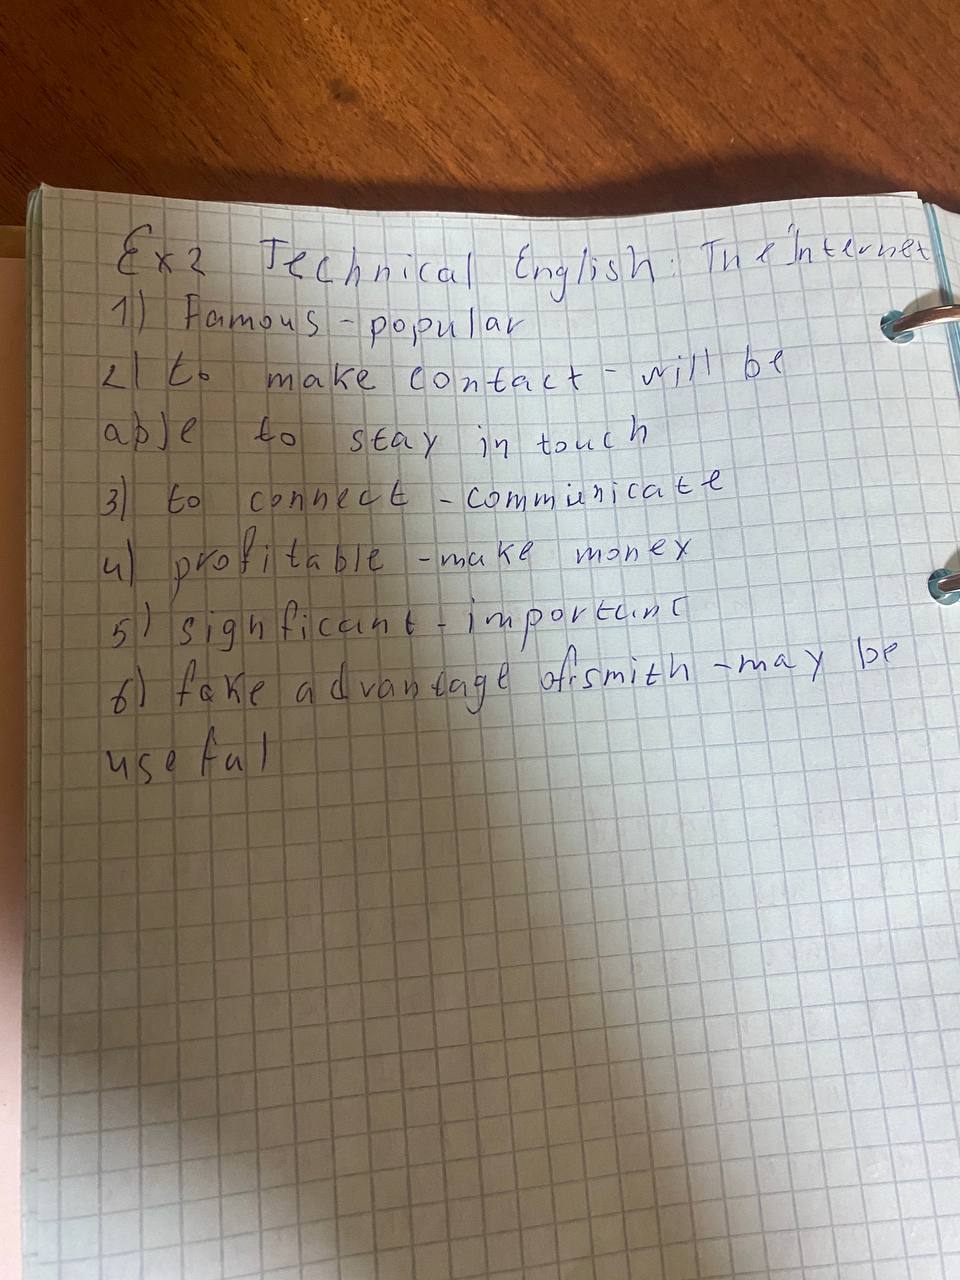 Ex2 Technical English: The Internet
1) Famous - popular
2) to make contact - will be
able to stay in touch
3) to connect - communicate
4) profitable - make money
5) signficant - important
6) take advantage of smith - may be
useful